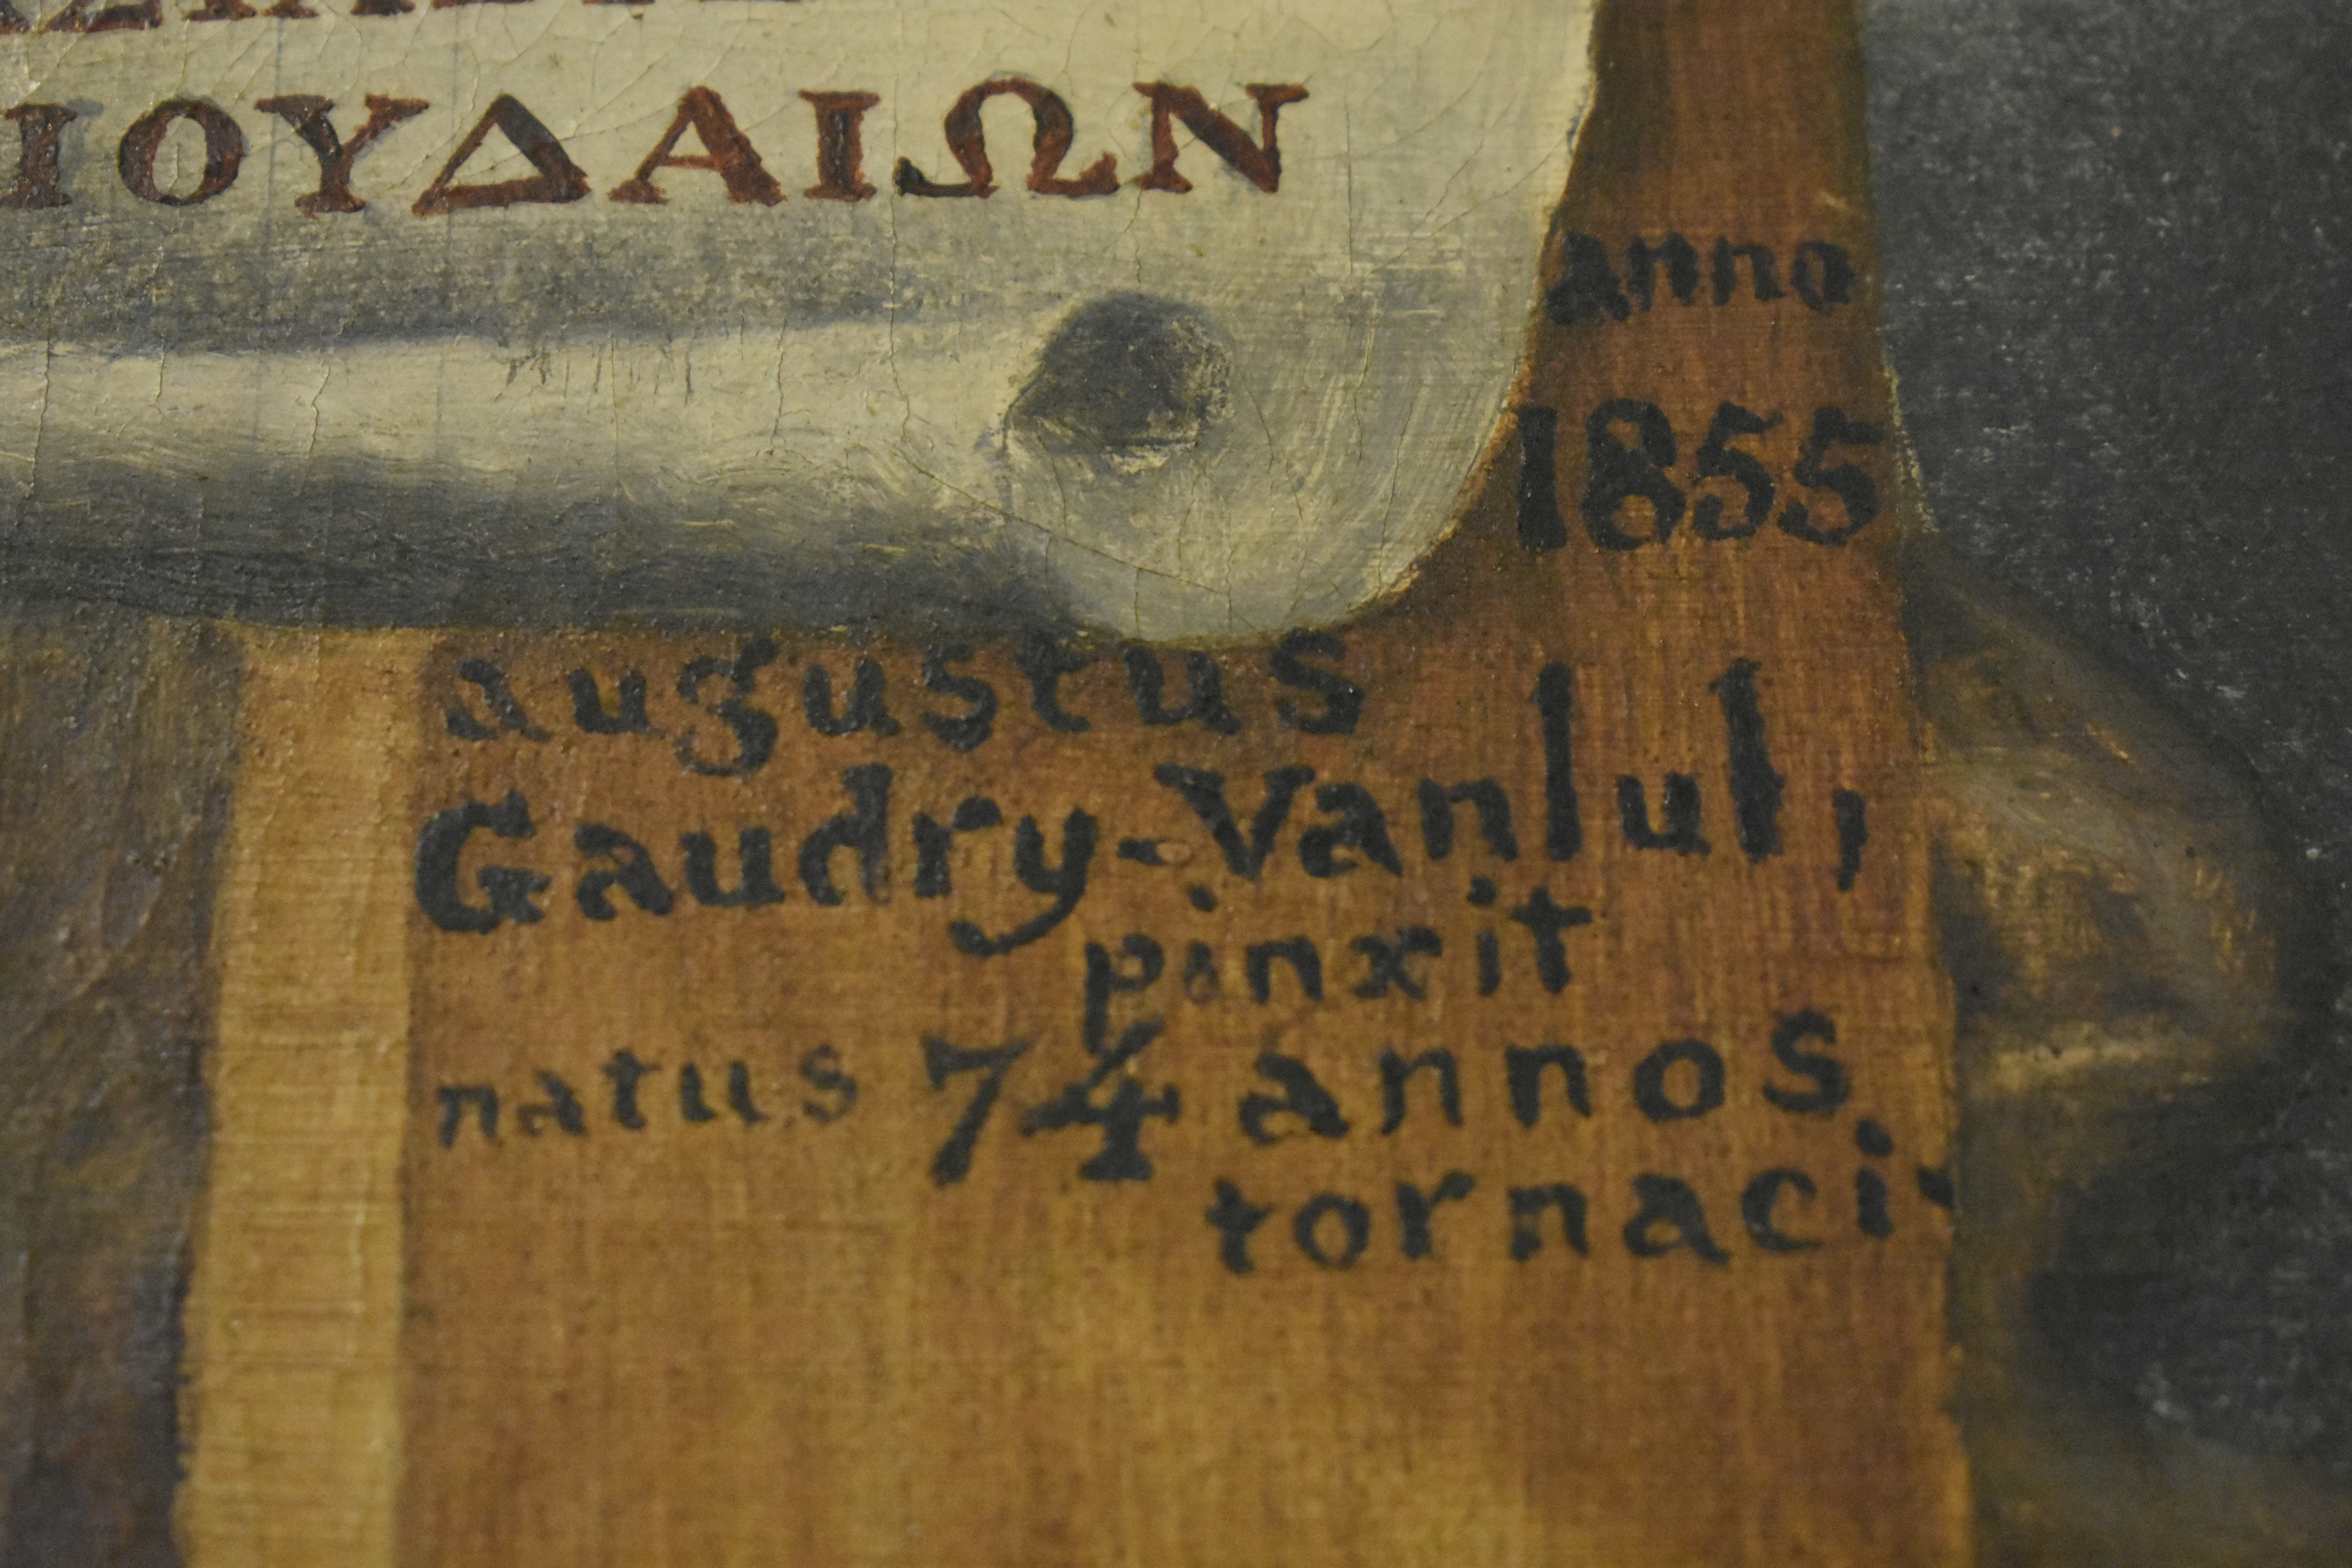 ΙΟΥΔΑΙΩΝ
anno
1855
augustus
Gaudry-Vanlul,
pinxit
natus 74 annos
tornaci.